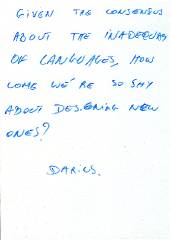 GIVEN THE CONSENSUS
ABOUT THE INADEQUACY
OF LANGUAGES, HOW
COME WE'RE SO SHY
ABOUT DESIGNING NEW
ONES?
DARIUS.